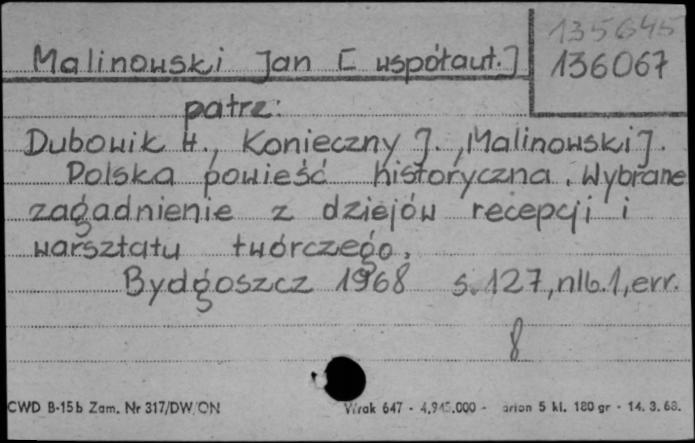 135645
Malinowski Jan [współaut.]
136067
patrz:
Dubowik H., Konieczny J., Malinowski J.
Polska powieść historyczna. Wybrane
zagadnienie z dziejów recepcji i
warsztatu twórczego.
Bydgoszcz 1968 s. 127, nlb. 1, err.
8
CWD B-15b Zam. Nr 317/DW/ON
5 kl. 180 gr - 14. 3. 68.